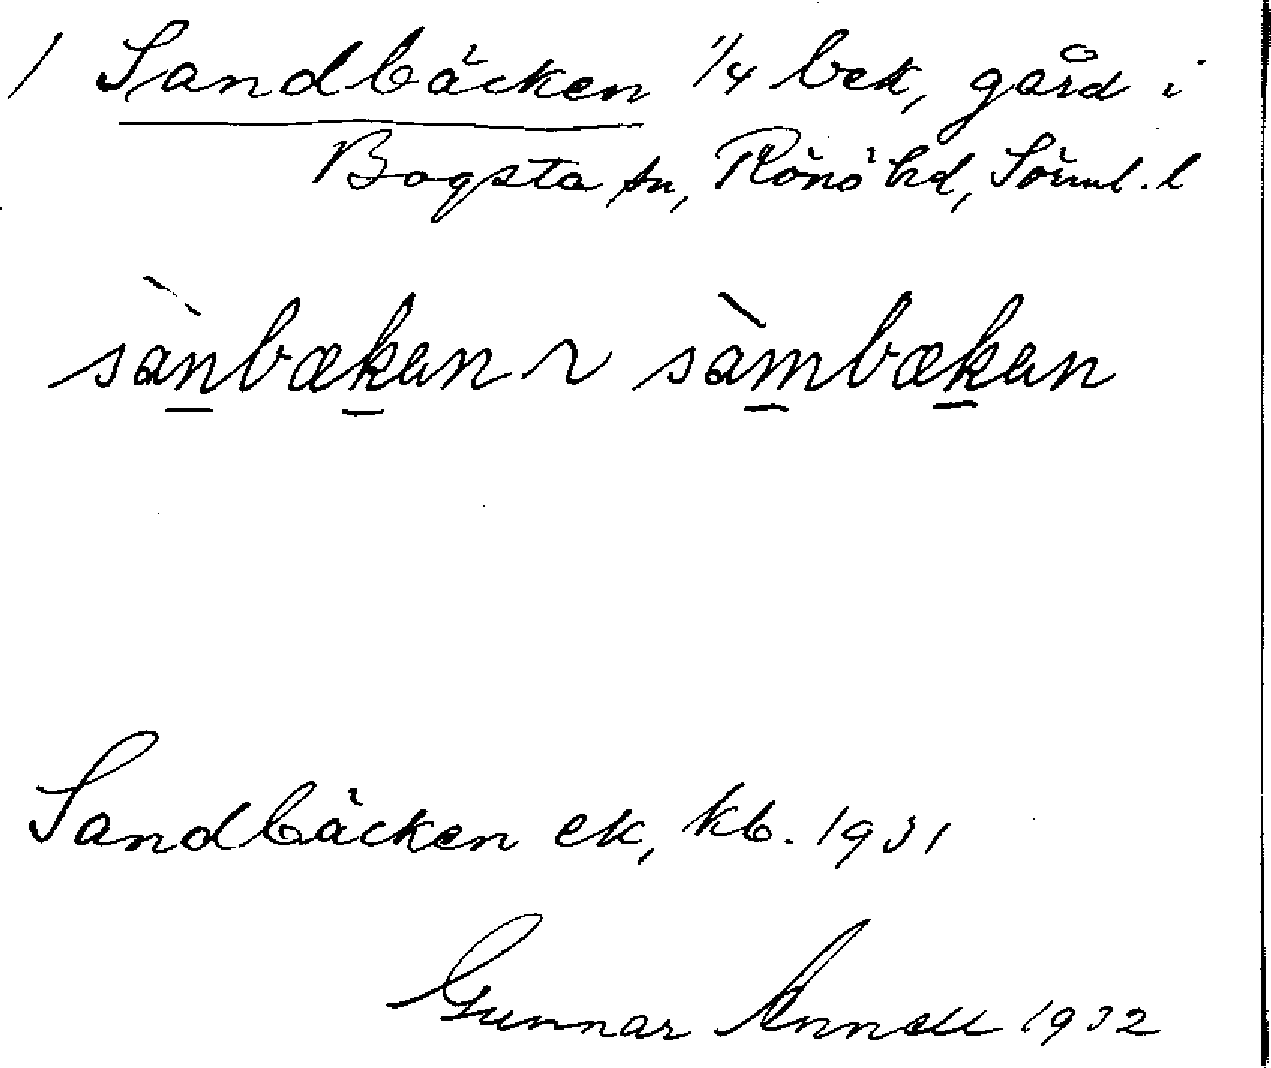 / Sandbäcken 1/4 bek, gård i
Bogsta sn, Rönö hd, Sörml. l
sànbækan ~ sàmbækan
Sandbäcken ek, kb. 1931
Gunnar Annell 1932